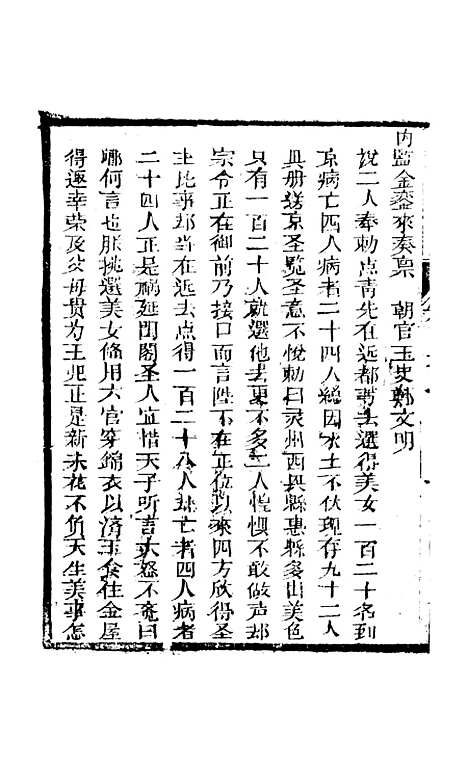 内监金鉴來奏票　朝官玉史鄭文明
說二人奉勅点靑先在近都專去選得美女一百二十名到
京病亡四人病者二十四人緫因水土不伏現存九十二人
具册送京圣覧圣意不悅勅曰灵州西具縣惠縣多山美色
只有一百二十人就選他去更不多二人惶惧不敢做声却
宗令正在御前乃接口而言陛下在正位以來四方欣得圣
主比事却当在近去点得一百二十八人缺亡者四人病者
二十四人正是祸延閏閣圣人宜惜天子听言大怒不兔曰
卿何言也朕挑選美女俻用六宫穿錦衣以济玉食住金屋
得邀幸荣及父母贵为王兒正是新未花不負天生美事怎